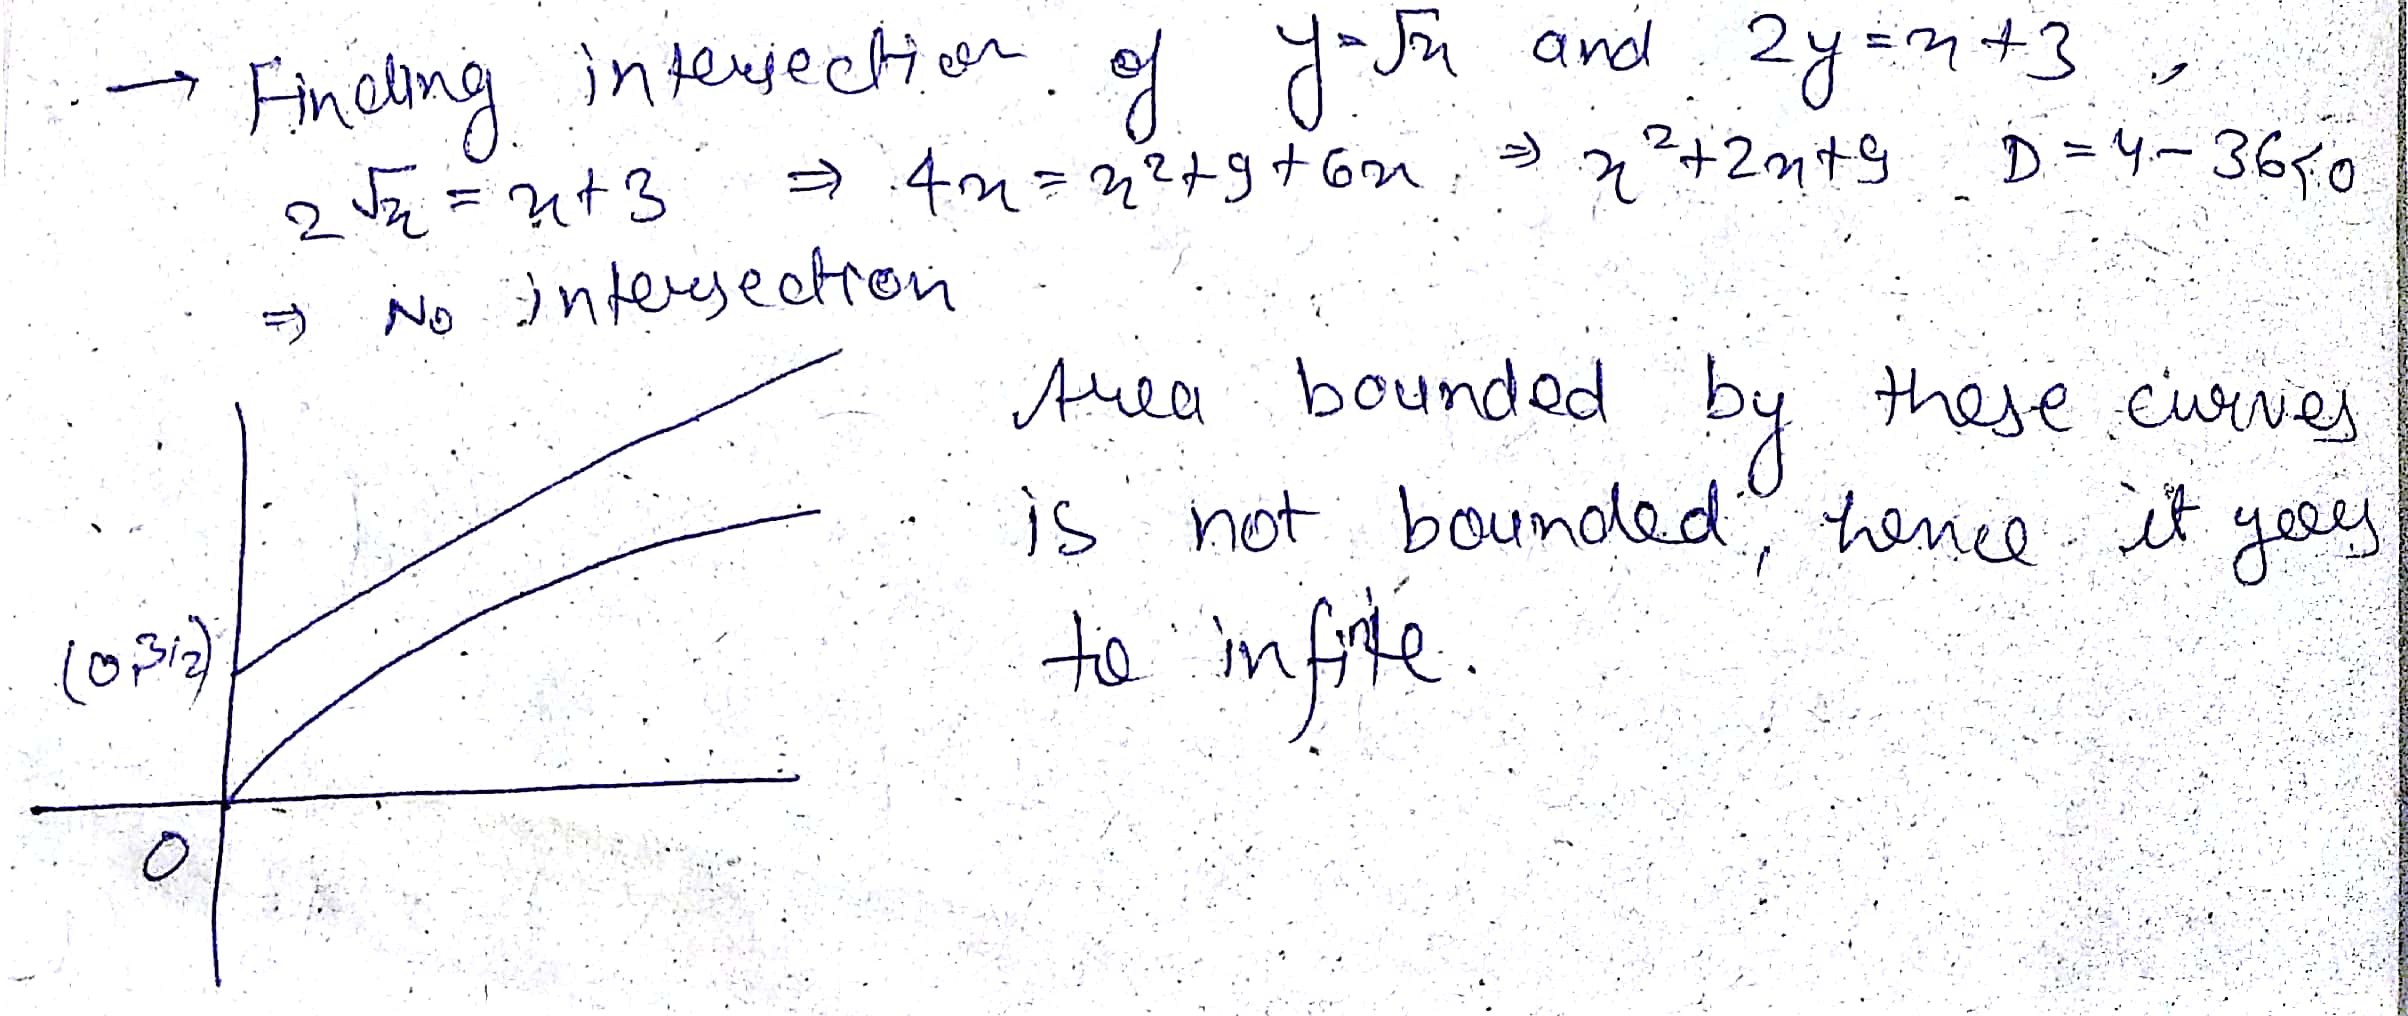 → Finding intersection of y=√x and 2y=x+3,
2√x = x+3 ⇒ 4x = x²+9+6x ⇒ x²+2x+9 D=4-36<0
⇒ No intersection
Area bounded by these curves
is not bounded, hence it goes
to infinte.
(0,3/2)
O